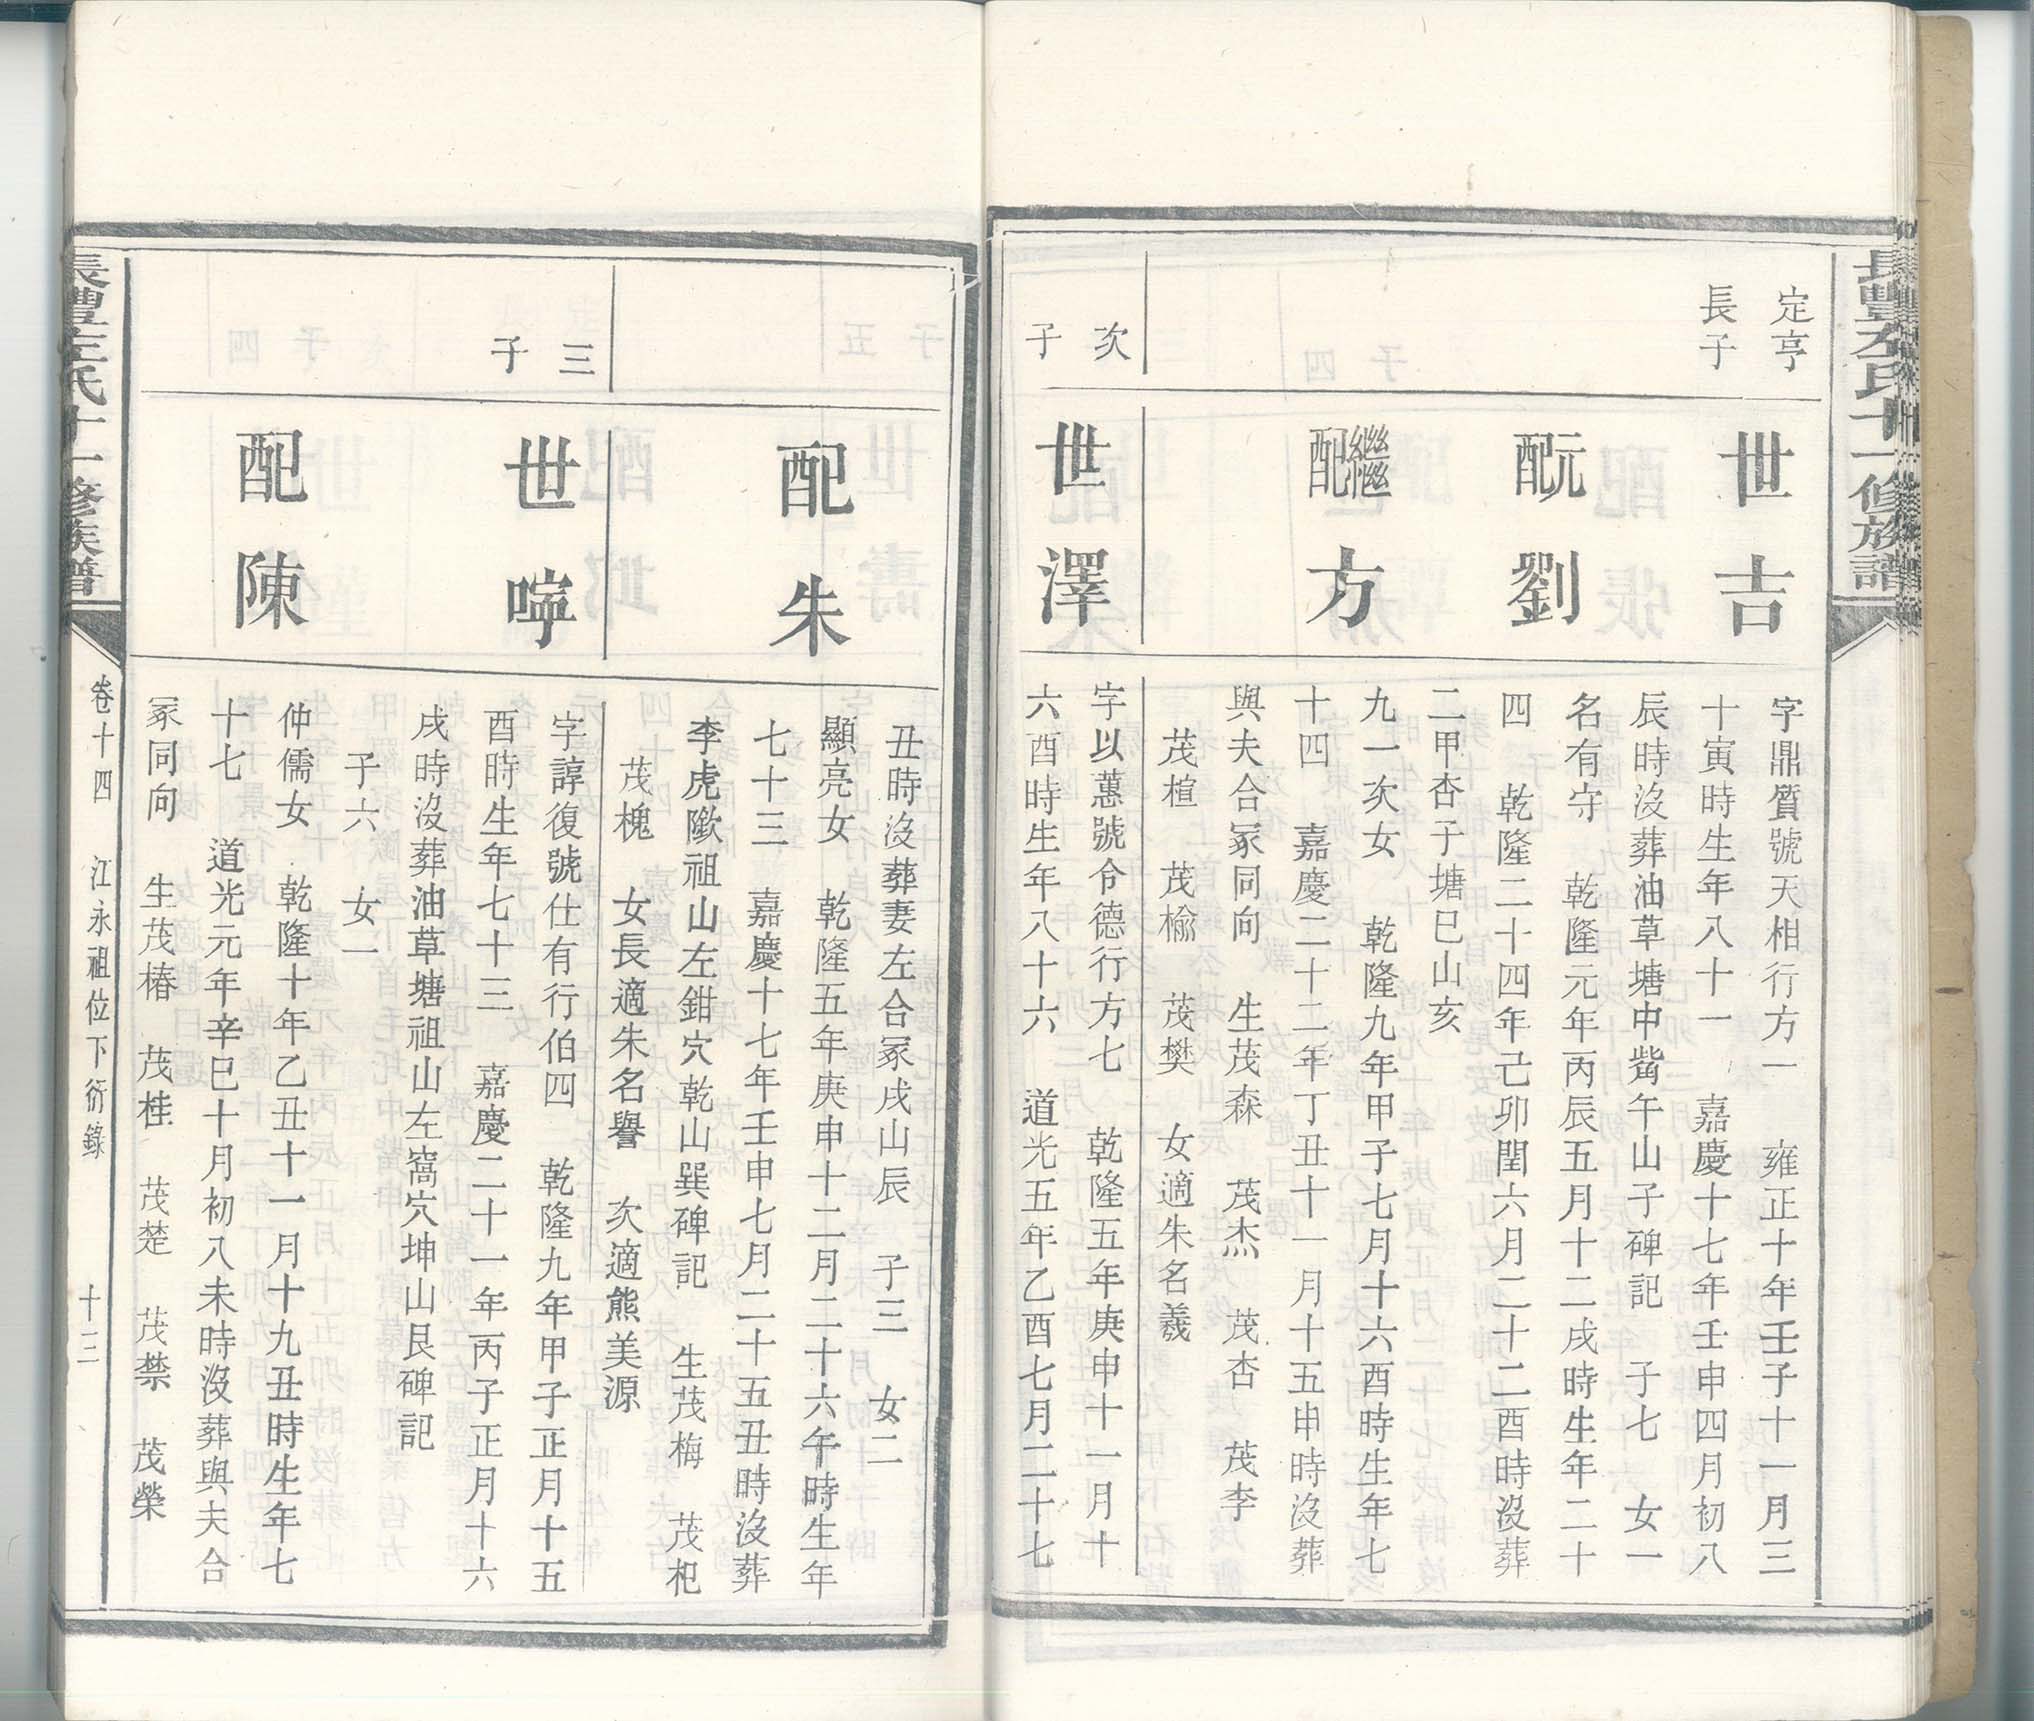 長豐左氏十一修族譜
定亨
長子
世吉
字鼎質號天相行方一　雍正十年壬子十一月三
十寅時生年八十一　嘉慶十七年壬申四月初八
辰時沒葬油草塘中觜午山子碑記　子七　女一
配元劉
名有守　乾隆元年丙辰五月十二戌時生年二十
四　乾隆二十四年己卯閏六月二十二酉時沒葬
二甲杏子塘巳山亥
繼配方
九一次女　乾隆九年甲子七月十六酉時生年七
十四　嘉慶二十二年丁丑十一月十五申時沒葬
與夫合冢同向　生茂森　茂杰　茂杏　茂李
茂楦　茂楡　茂樊　女適朱名羲
次
子
世澤
字以蕙號令德行方七　乾隆五年庚申十一月十
六酉時生年八十六　道光五年乙酉七月二十七
丑時沒葬妻左合冢戌山辰　子三　女二
配朱
顯亮女　乾隆五年庚申十二月二十六午時生年
七十三　嘉慶十七年壬申七月二十五丑時沒葬
李虎歐祖山左鉗穴乾山巽碑記　生茂梅　茂杞
茂槐　女長適朱名譽　次適熊美源
三
子
世嚀
字諄復號仕有行伯四　乾隆九年甲子正月十五
酉時生年七十三　嘉慶二十一年丙子正月十六
戌時沒葬油草塘祖山左窩穴坤山艮碑記
子六　女一
配陳
仲儒女　乾隆十年乙丑十一月十九丑時生年七
十七　道光元年辛巳十月初八未時沒葬與夫合
冢同向　生茂椿　茂桂　茂楚　茂禁　茂榮
長豐左氏十一修族譜
卷十四　江永祖位下衍錄　十三